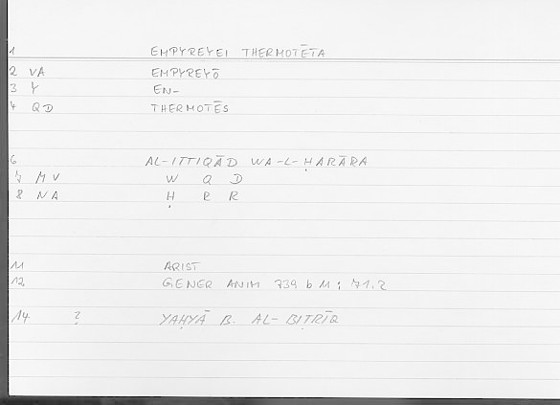 1 EMPYREYEI THERMOTĒTA
2 VA EMPYREYŌ
3 Y EN-
4 QD THERMOTĒS
6 AL-ITTIQĀD WA-L-ḤARĀRA
7 MV W Q D
8 NA Ḥ R R
11 ARIST
12 GENER ANIM 739 b 11 ; 71.2
14 ? YAḤYĀ B. AL-BIṬRĪQ